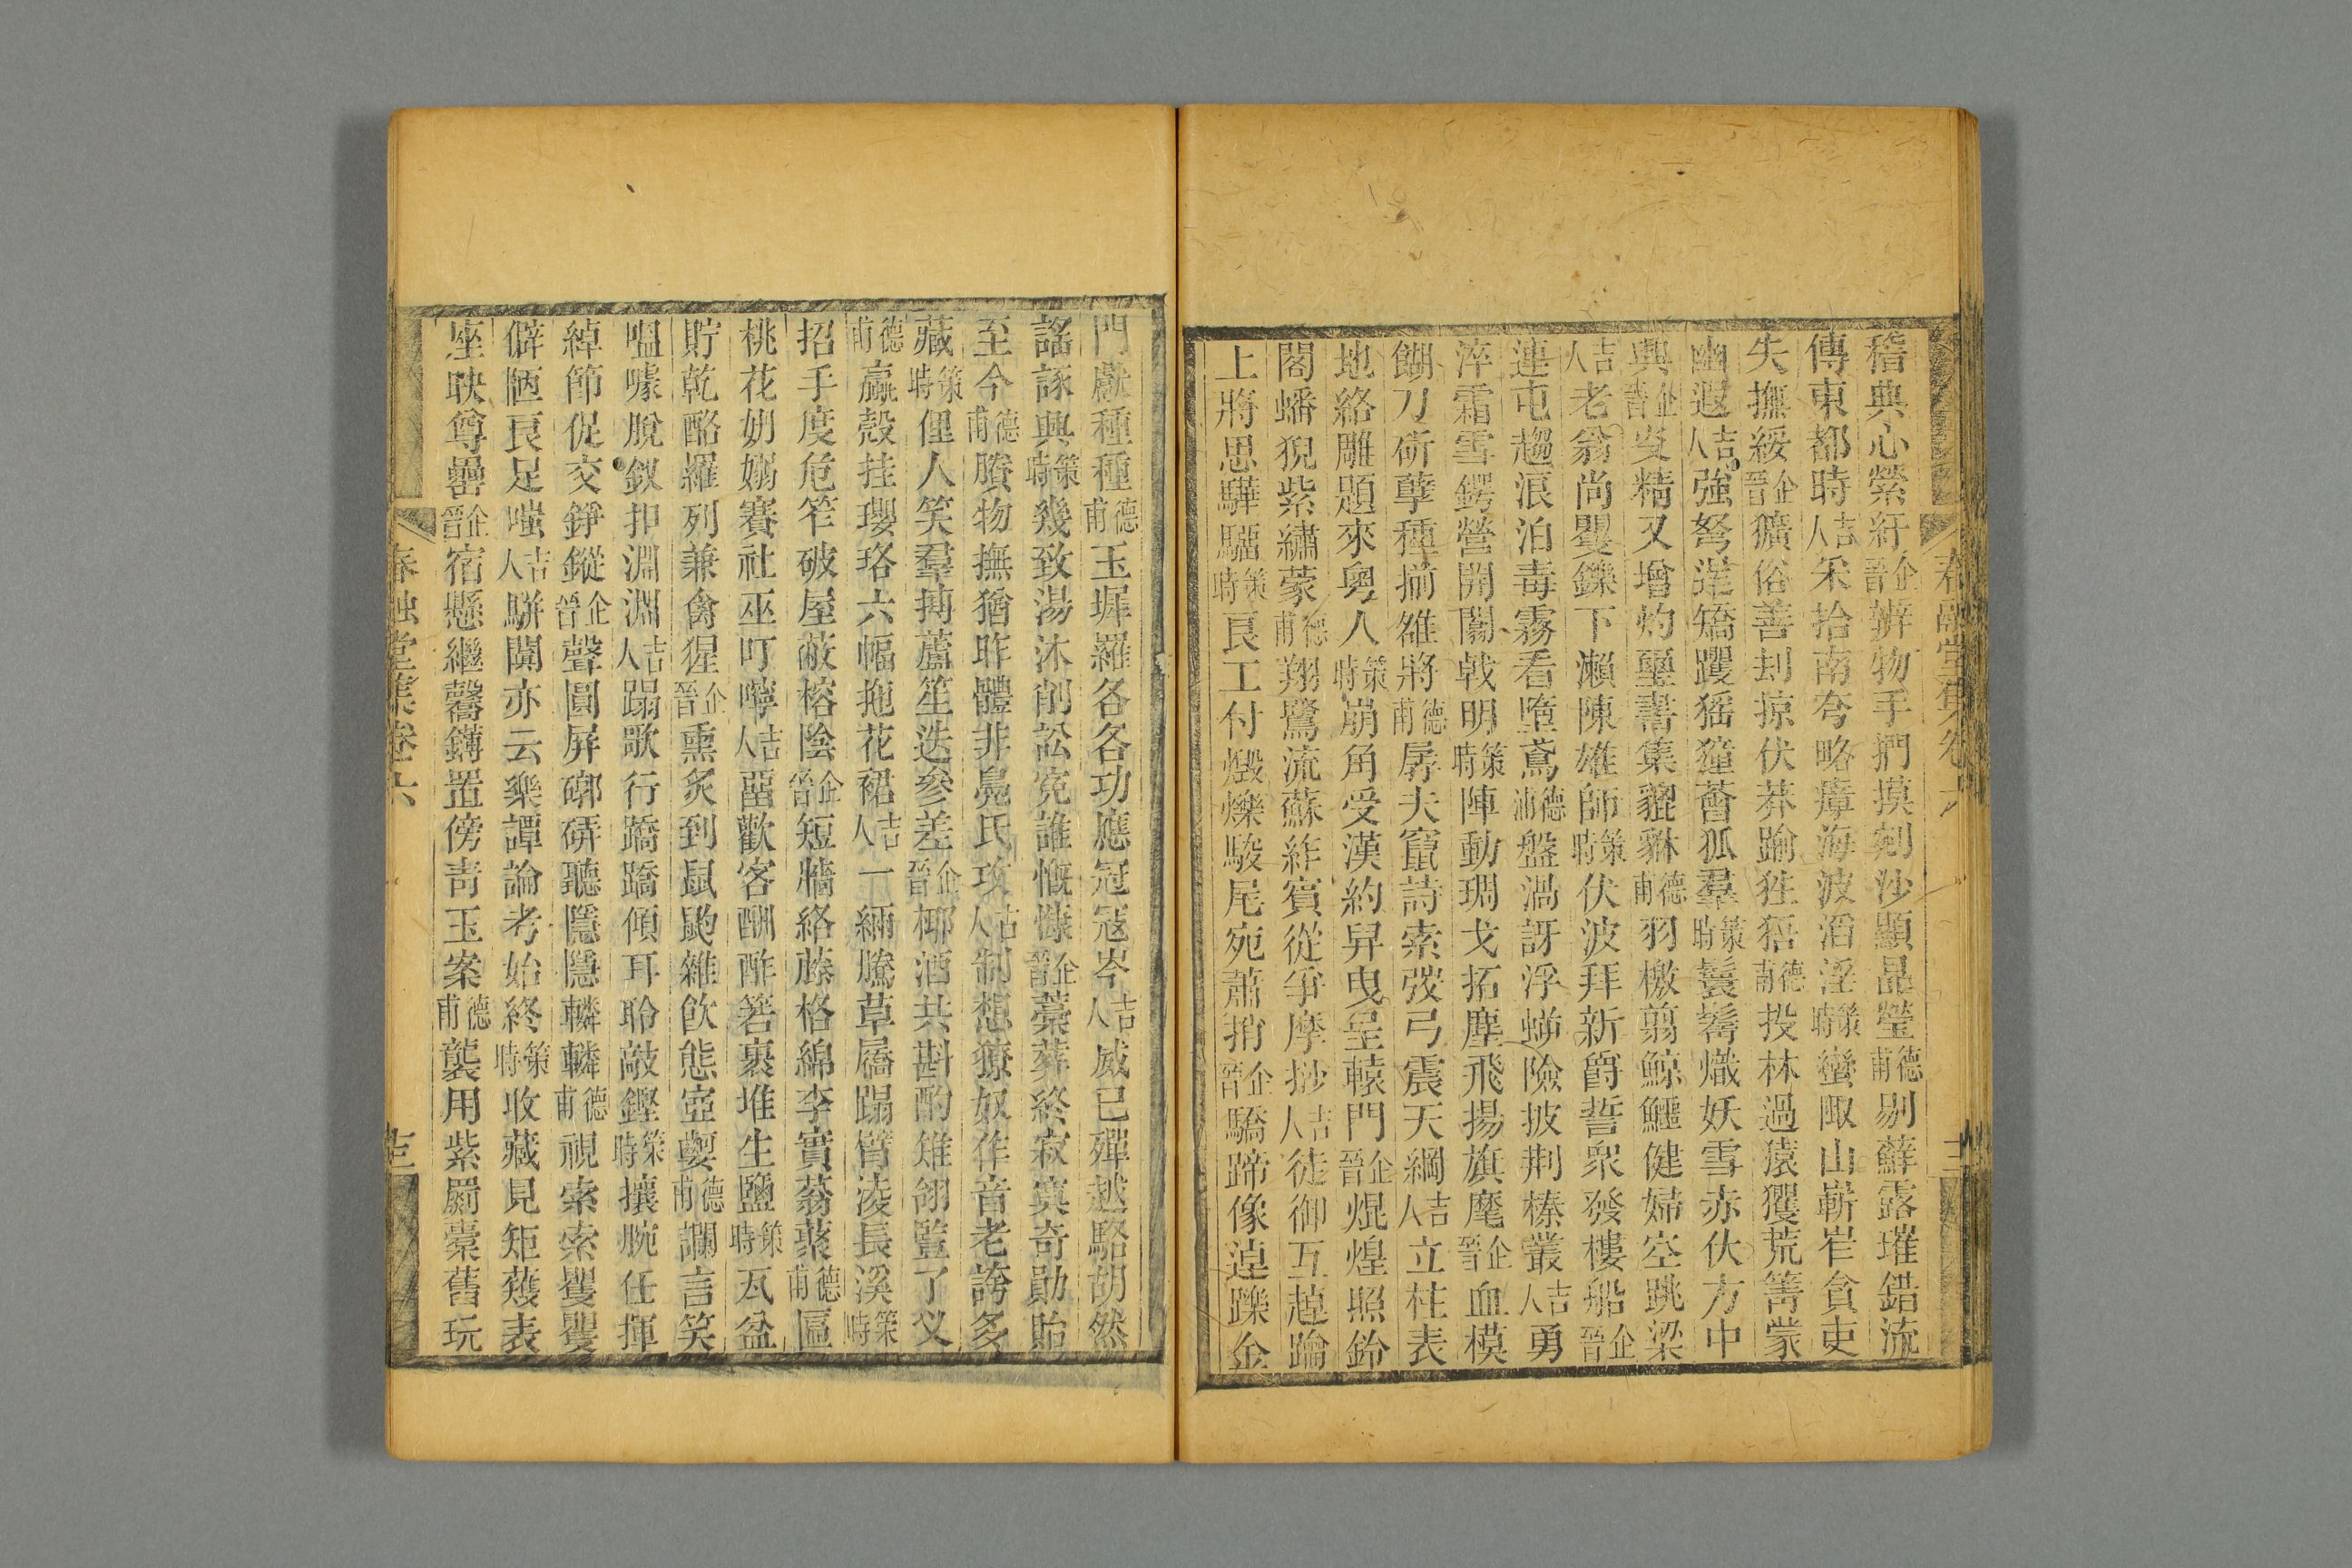 稽典心縈紆企晉辨物手捫摸剜沙顯晶瑩德甫剔蘚露璀錯流
傳東都時吉人采拾南夸略瘴海波滔淫策時蠻陬山嶄崒貪吏
失撫綏企晉獷俗善刦掠伏莽踰狌狤德甫投林過猿玃荒箐蒙
幽遐吉人強弩逞矯躩猺獞薈狐羣策時鬟髻熾妖雪赤伏方中
興企晉旻精又增灼璽書集貔貅德甫羽檄翦鯨鱷健婦空跳梁
吉人老翁尚矍鑠下瀨陳雄師策時伏波拜新爵誓眾發樓船企晉
連屯趨浪泊毒霧看墮鳶德甫盤渦訝浮蝣險披荆榛叢吉人勇
淬霜雪鍔營開闢戟明策時陣動琱戈拓塵飛揚旗麾企晉血模
餬刀斫孽種揃雒將德甫孱夫竄詩索弢弓震天綱吉人立柱表
地絡雕題來奥人策時崩角受漢約舁曳呈轅門企晉焜煌照鈴
閣蟠猊紫繡蒙德甫翔鷺流蘇絆賓從爭摩挱吉人徒御互趠踰
上將思驊騮策時良工付煅爍駿尾宛蕭捎企晉驕蹄像逴躒金
門獻種種德甫玉墀羅各各功應冠寇岑吉人威已殫越駱胡然
謠諑興策時幾致湯沐削訟寃誰慨慷企晉藁葬終寂寞奇勛貽
至今德甫賸物撫猶昨體非鳧氏攻吉人制想獠奴作音老誇多
藏策時俚人笑羣搏蘆笙迭參差企晉椰酒共斟酌雉翎簪了义
德甫蠃殼挂瓔珞六幅拖花裙吉人一緉騰草屩蹋臂淩長溪策時
招手度危笮破屋蔽榕陰企晉短牆絡藤格綿李實蓊蕠德甫匾
桃花妠嫋賽社巫叮嚀吉人蓲歡客酬酢箬裹堆生鹽策時瓦盆
貯乾酪羅列兼禽猩企晉熏炙到鼠鼩雜飲態壺㼤德甫讕言笑
嗢噱脫釵扣淵淵吉人蹋歌行蹻蹻傾耳聆敲鏗策時攘腕任揮
綽節促交錚鏦企晉聲圓屏磤硑聽隱隱轔轔德甫視索索矍矍
僻陋良足嗤吉人駢闐亦云樂譚論考始終策時收藏見矩蒦表
座映尊罍企晉宿懸繼磬鏄置傍靑玉案德甫襲用紫罽橐舊玩
春融堂集卷六